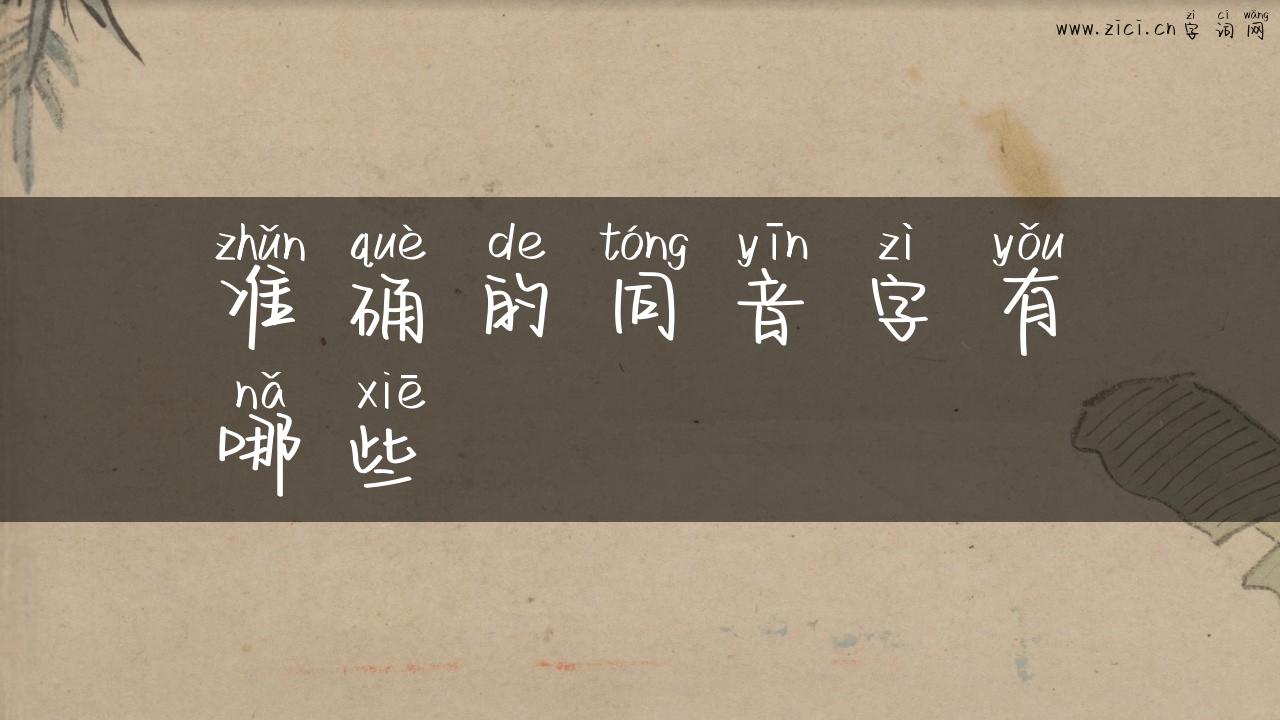 zì cí wǎng
www.zici.cn 字词网
zhǔn què de tóng yīn zì yǒu
准确的同音字有
nǎ xiē
哪些